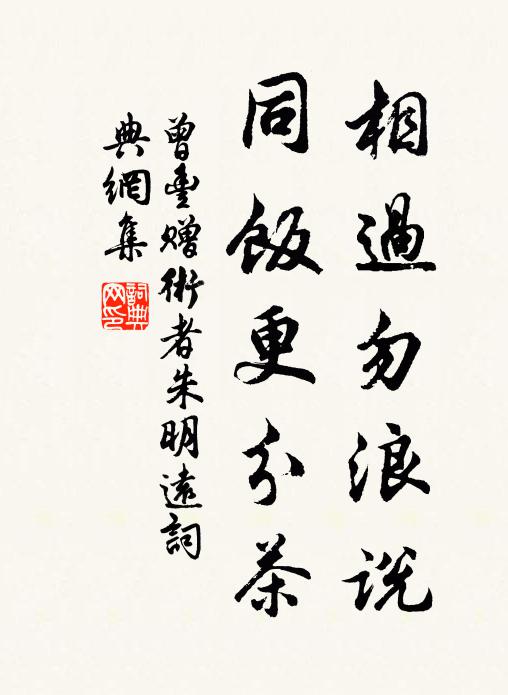 相過勿浪説
同飯更分茶
曾豊贈術者朱明遠詞
典網集
詞典網印